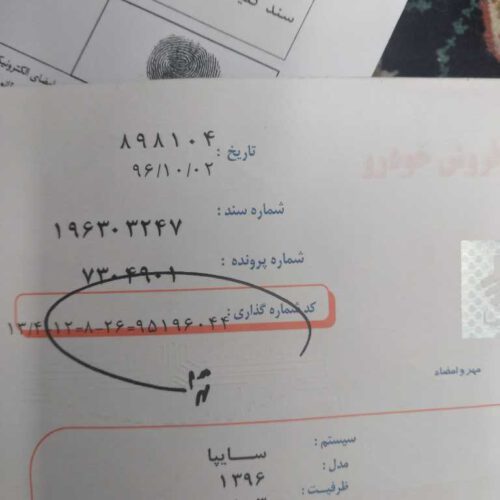 سند
امضای الکترونیک
۸۹۸۱۰۴
تاریخ :
۹۶/۱۰/۰۲
فروش خودرو
شماره سند :
۱۹۶۳۰۳۲۴۷
شماره پرونده :
۷۳۰۴۹۰۱
کد شماره گذاری :
۱۳/۴ ۱۲=۸-۲۶=۹۵۱۹۶۰۴۴
مهر و امضاء
سیستم :
سایپا
مدل :
۱۳۹۶
ظرفیت :